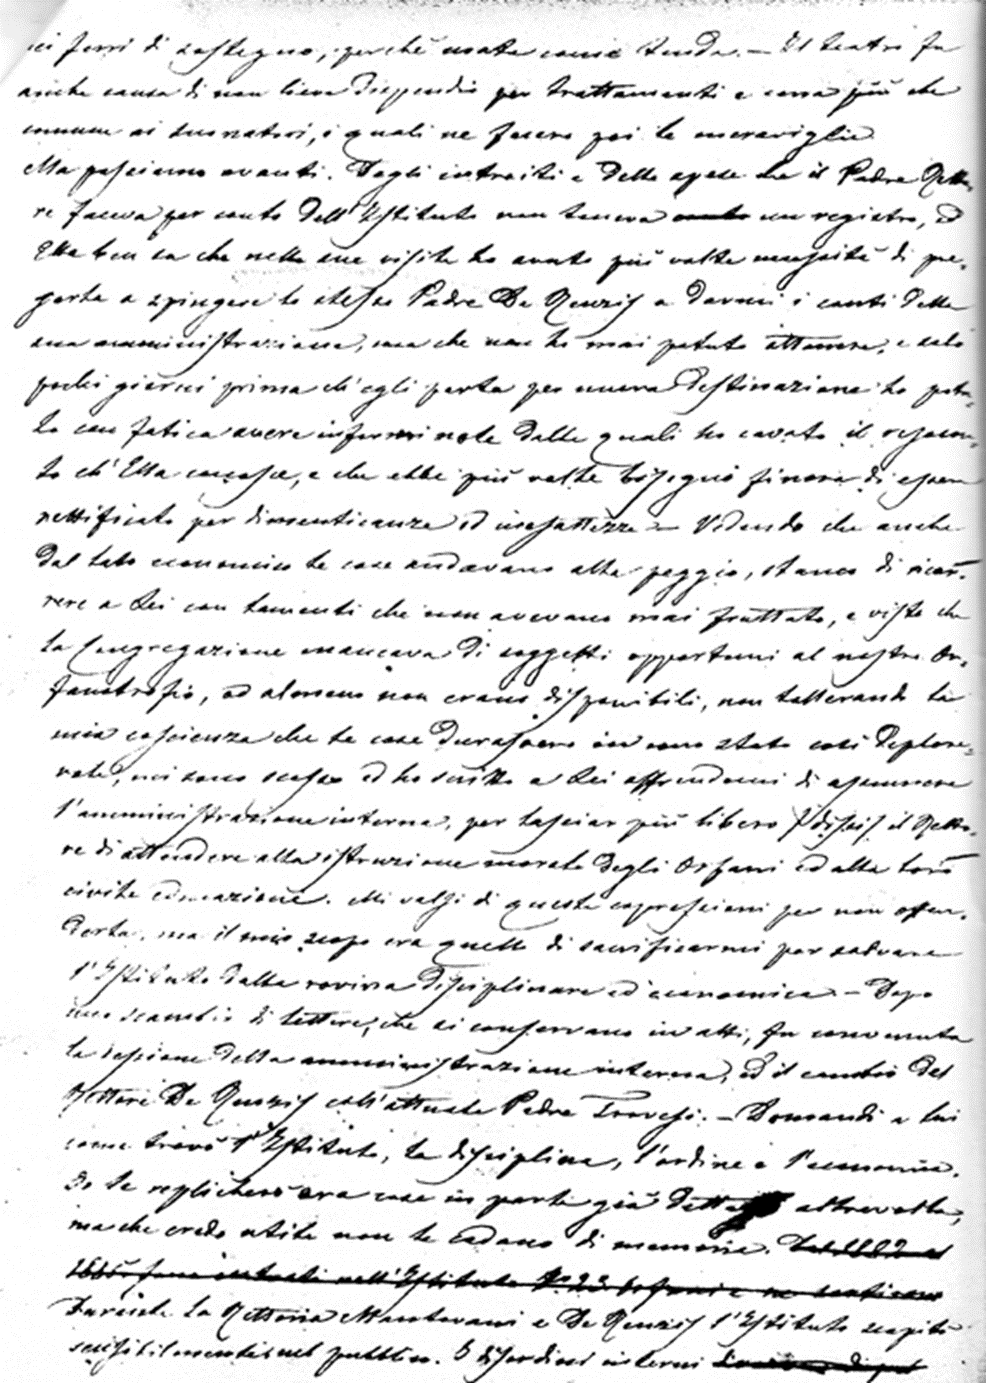 ici ferri di sostegno, perchè usata come tenda. — Il teatro fu
anche causa di non lieve dispendio per trattamenti e cena più che
comune ai suonatori, i quali ne fecero poi le meraviglie
Ma passiamo avanti. Degli introiti e delle spese che il Padre Retto-
re faceva per conto dell'Istituto non teneva un registro, ed
Ella ben sa che nelle sue visite ho avuto più volte necessità di pre-
garla a spingere lo stesso Padre De Renzis a darmi i conti della
sua amministrazione, ma che non ho mai potuto ottenere, e solo
pochi giorni prima ch'egli parta per nuova destinazione ho potu-
to con fatica avere informi note dalle quali ho cavato il resocon-
to ch'Ella conosce, e che ebbe più volte bisogno finora di essere
rettificato per dimenticanze ed inesattezze — Vedendo che anche
dal lato economico le cose andavano alla peggio, stanco di ricor-
rere a Lei con lamenti che non avevano mai fruttato, e visto che
la Congregazione mancava di soggetti opportuni al nostro Or-
fanotrofio, od almeno non erano disponibili, non tollerando la
mia coscienza che le cose durassero in uno stato così deplore-
vole, mi sono scosso ed ho scritto a Lei offrendomi di assumere
l'amministrazione interna, per lasciar più libero il Retto-
re di attendere alla istruzione morale degli Orfani ed alla loro
civile educazione. Mi valsi di queste espressioni per non offen-
derla, ma il mio scopo era quello di sacrificarmi per salvare
l'Istituto dalla rovina disciplinare ed economica. — Dopo
uno scambio di lettere, che si conservano in atti, fu convenuta
la cessione della amministrazione interna, ed il cambio del
Rettore De Renzis coll'attuale Padre Trovesi. — Domandi a lui
come trovò l'Istituto, la disciplina, l'ordine e l'economia.
Io le replicherò ora cose in parte già dette altre volte,
ma che credo utile non le cadano di memoria. Dal 1882 al
1885 sono entrati nell'Istituto N.o 23 Orfani e ne sortirono
Durante la Rettoria Mantovani e De Renzis l'Istituto scapitò
sensibilmente nel pubblico. I disordini interni